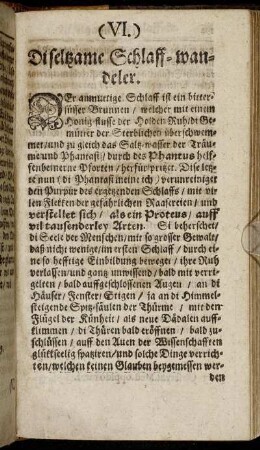 (VI.)
Di seltzame Schlaff-wan-
deler.
DEr anmuttige Schlaff ist ein bitter-
süsser Brunnen / welcher mit einem
Honig-flusse der Holden Ruh / di Ge-
mütter der Sterblichen überschwem-
met / und zu gleich das Saltz-wasser der Träu-
me und Phantasi / durch des Phantus helf-
fenbeinerne Pforten / herfür spritzet. Dise letz-
te nun (di Phantasi meine ich) verunreiniget
den Purpur des ergetzenden Schlaffs / mit vi-
len Flekken der gefährlichen Raasereien / und
verstellet sich / als ein Proteus / auff
vil tausenderley Arten. Si beherschet
di Seele der Menschen / mit so grosser Gewalt /
daß nicht wenige / im ersten Schlaff / durch ei-
ne so hefftige Einbildung beweget / ihre Ruh
verlassen / und gantz unwissend / bald mit verri-
gelten / bald auffgeschlossenen Augen / an di
Häuser / Fenster / Stigen / ja an di Himmel-
steigende Spitz-säulen der Thürme / mit den
Flügel der Künheit / als neue Dädalen auff-
klimmen / di Thüren bald eröffnen / bald zu-
schlüssen / auff den Auen der Wissenschafften
glükseelig spatziren / und solche Dinge verrich-
ten / welchen keinen Glauben beygemessen wer-
den